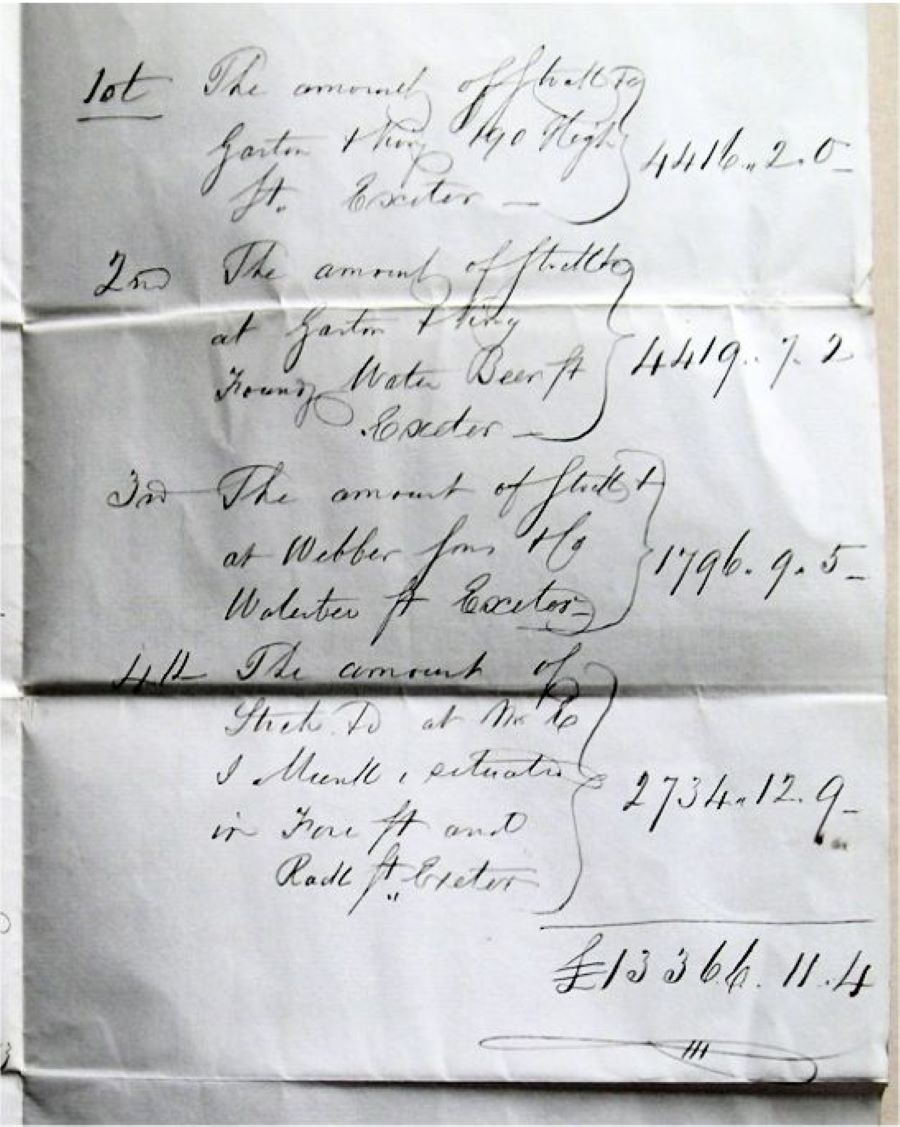 1st The amount of Stock &c
Garton & King 190 High
St. Exeter —
4416.. 2. 0 —
2nd The amount of Stock &c
at Garton & King
Foundy Water Beer St
Exeter —
4419. 7. 2
3rd The amount of Stock &
at Webber Sons & Co
Waterbeer St Exeter —
1796. 9. 5 —
4th The amount of
Stock &c at Mr E
J Munk, situate
in Fore St and
Rack St,, Exeter
2734.. 12. 9 —
£13366. 11. 4